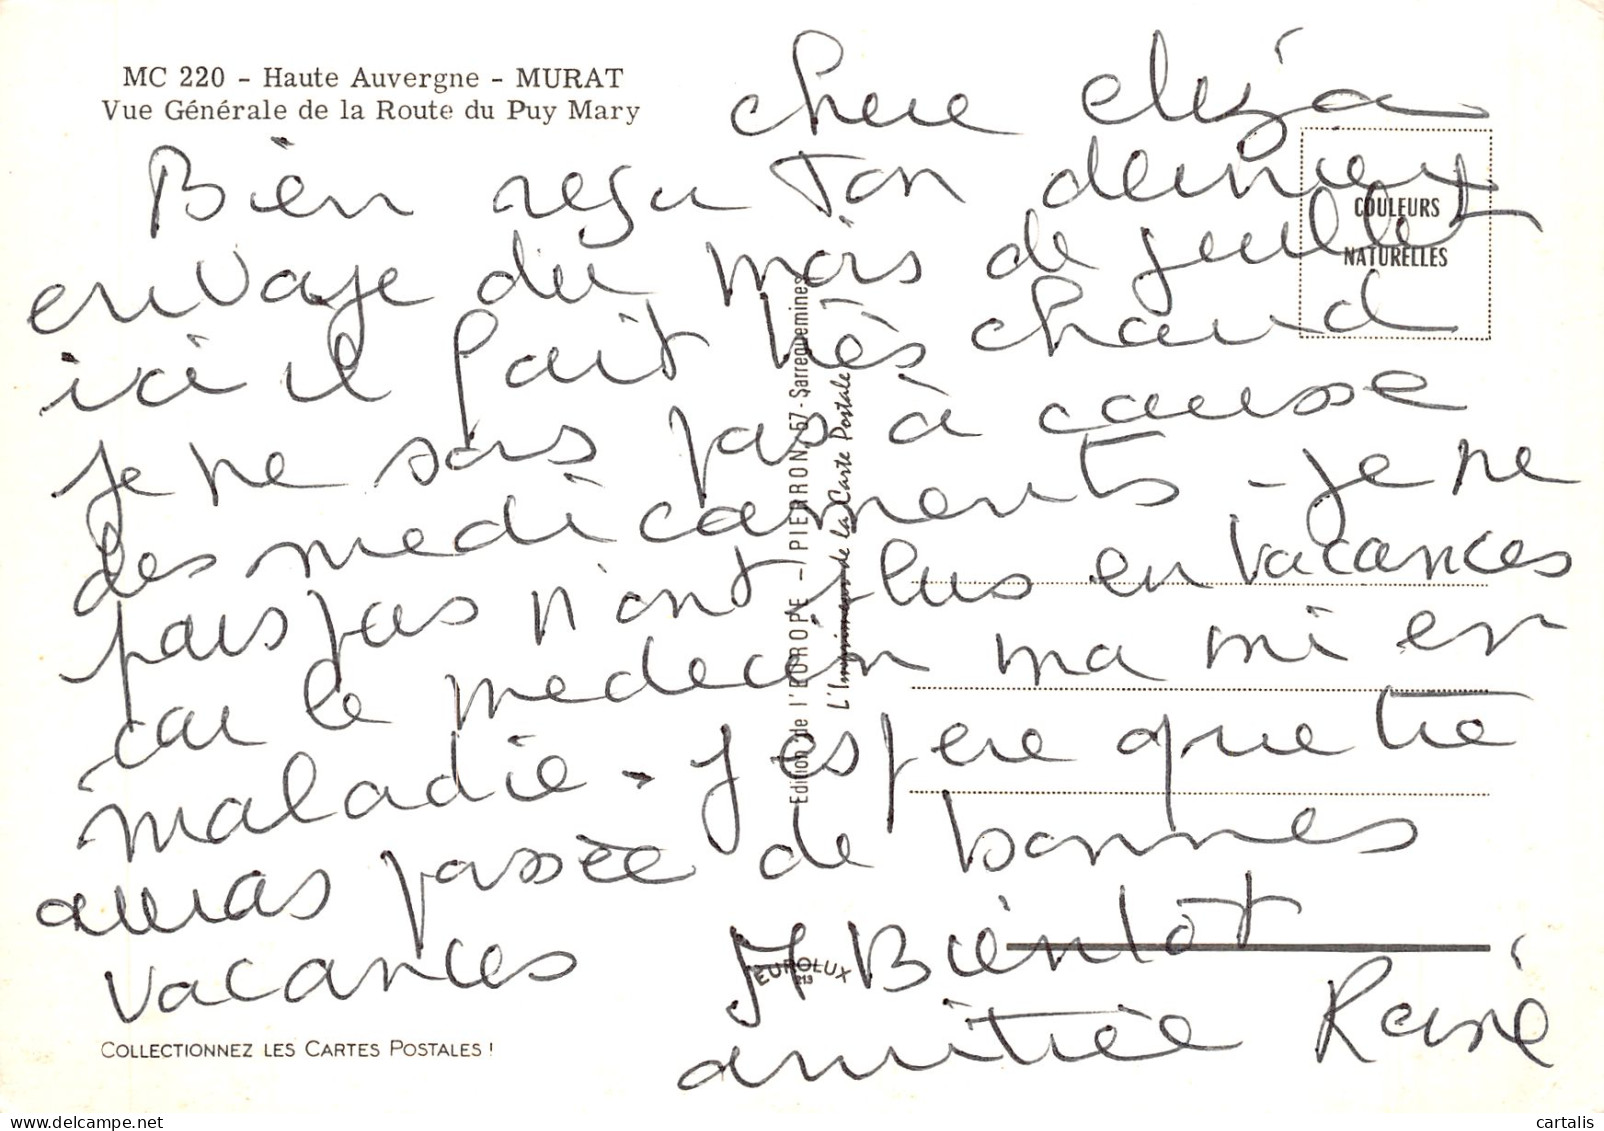 MC 220 - Haute Auvergne - MURAT
Vue Générale de la Route du Puy Mary
Chere eliza
Bien reçu ton dernier
envoye du mois de juillet
ici il fait très chaud
je ne sors pas à cause
des medicaments - je ne
pars pas n'ont plus en vacances
car le medecin ma mi en
maladie - J espere que tu
auras passée de bonnes
vacances A Bientôt
amitiée René
COULEURS
NATURELLES
Edition de l'EUROPE - PIERRON, 57 - Sarreguemines
L'Imprimeur de la Carte Postale
EUROLUX
213
COLLECTIONNEZ LES CARTES POSTALES !
cartalis